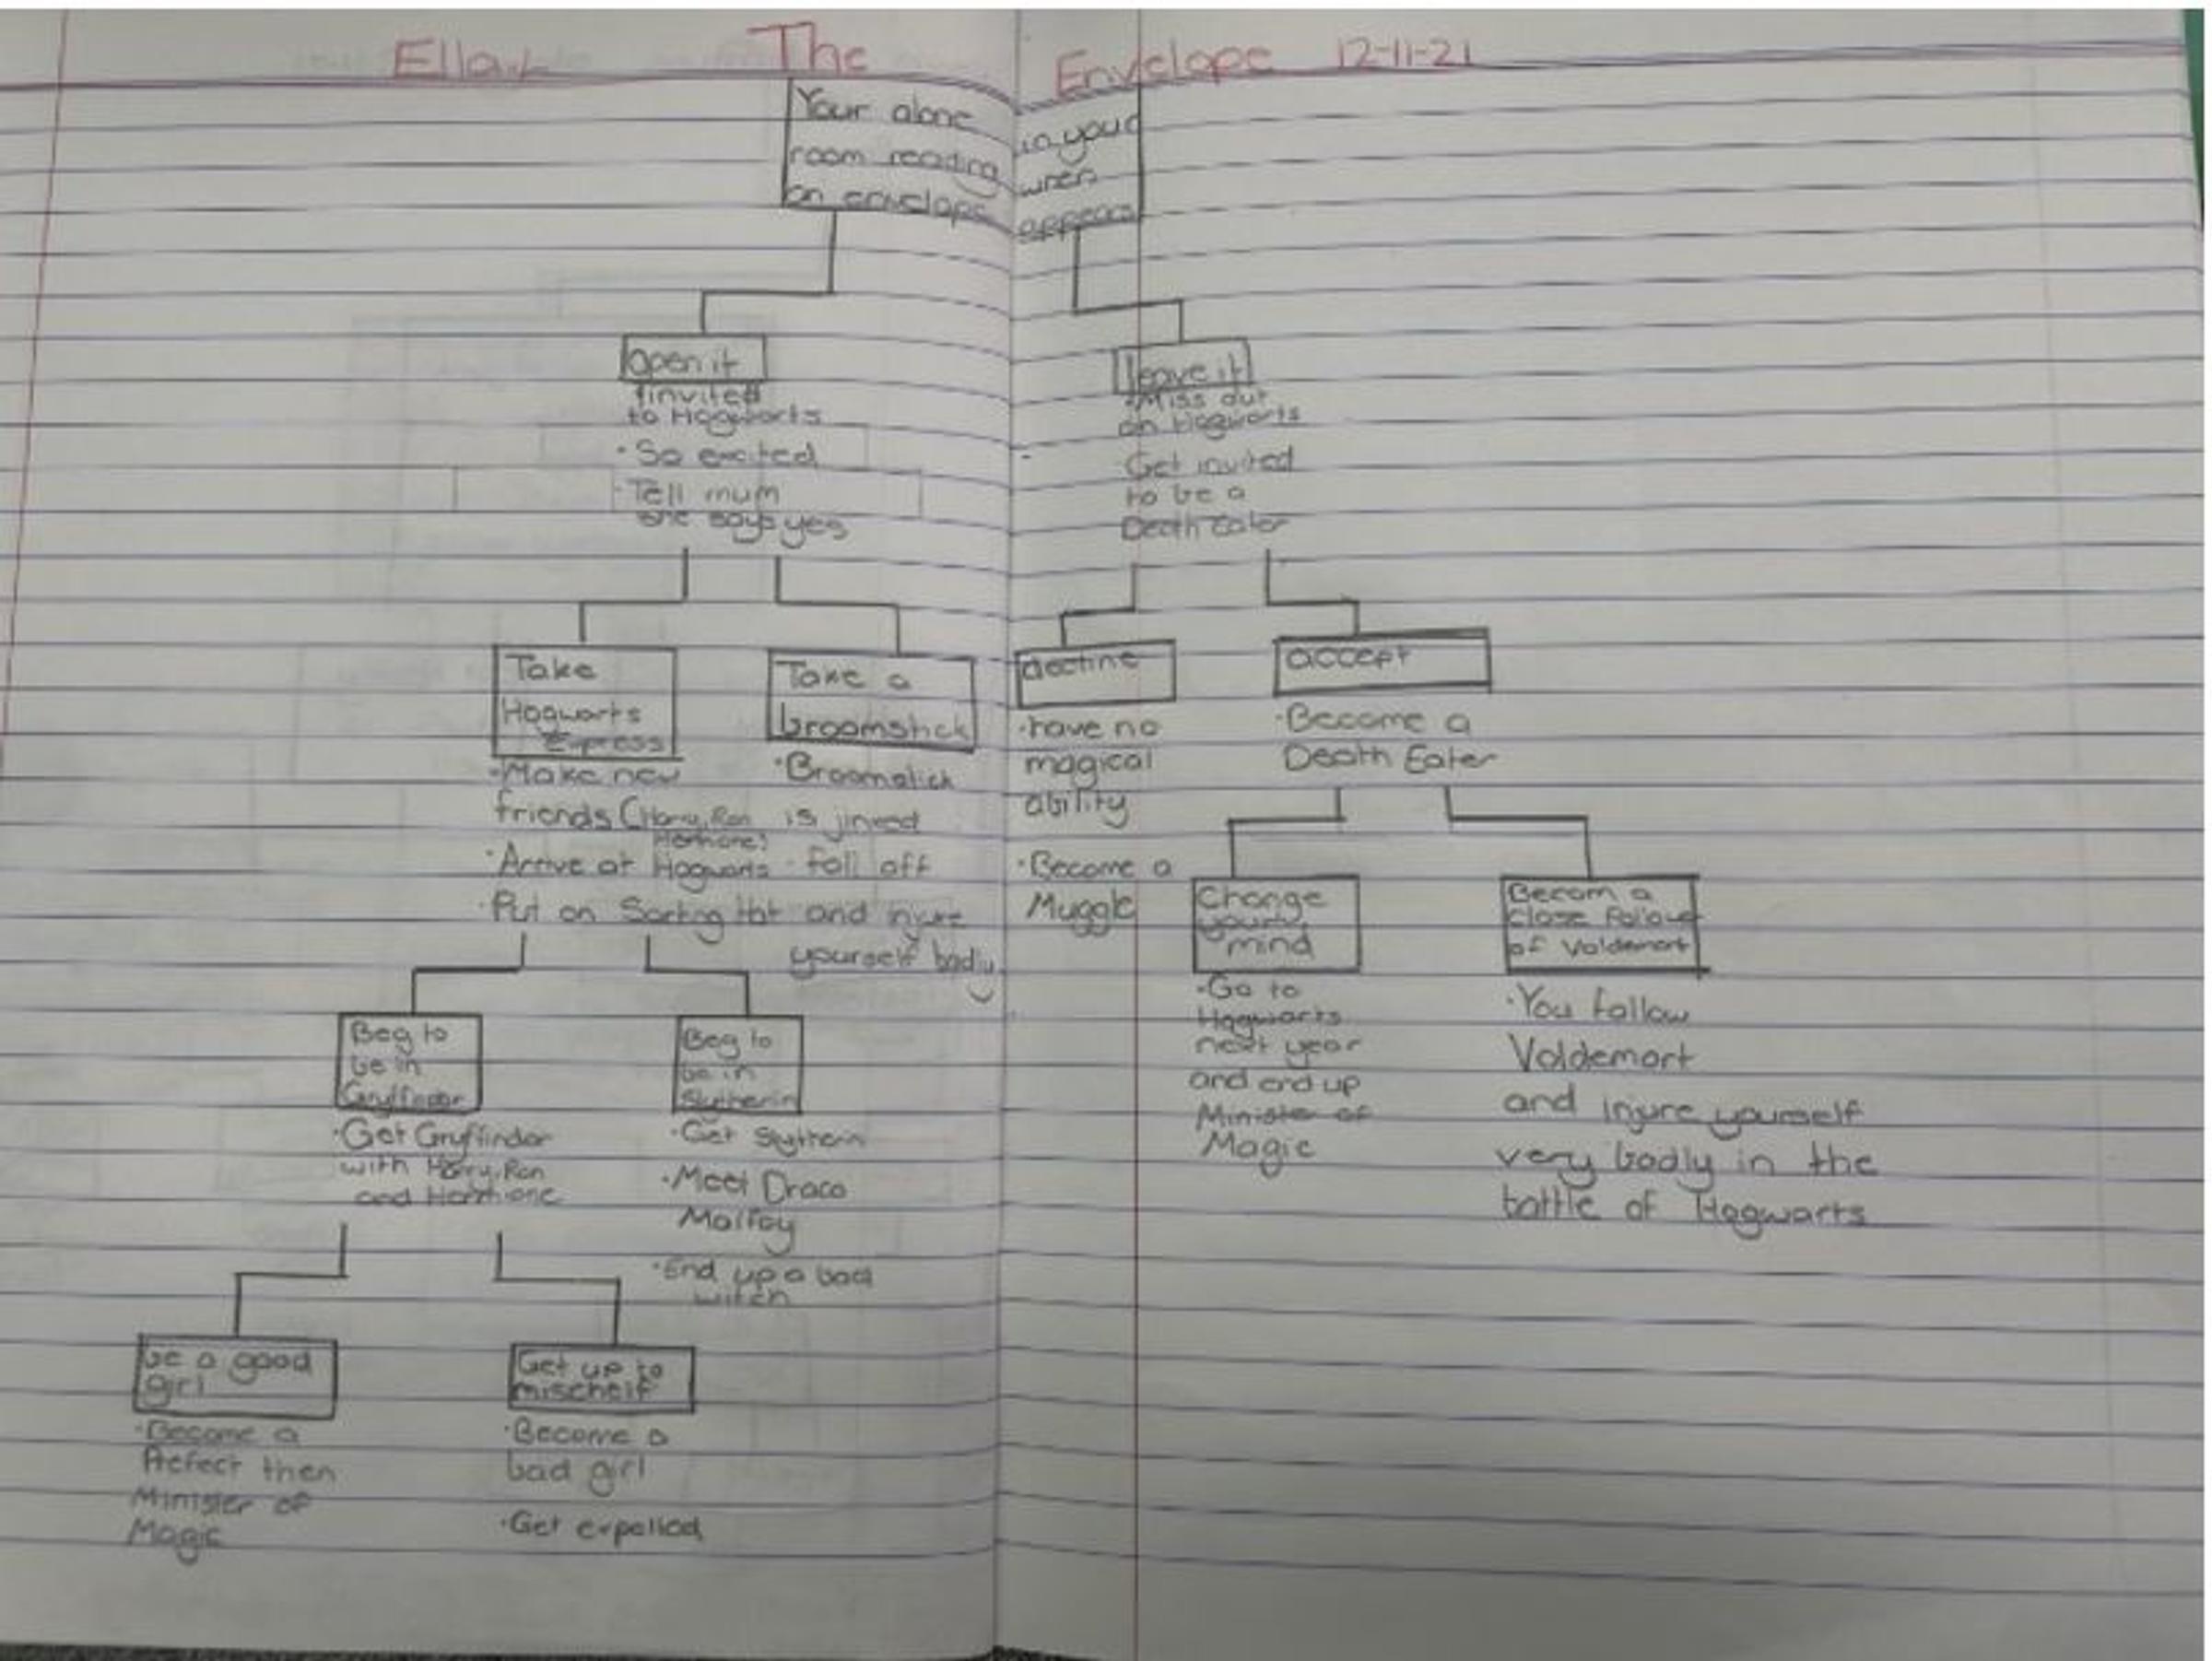 Ella.L The Envelope 12-11-21
Your alone in your
room reading when
an envelope appears
open it
invited
to Hogwarts
· So excited
· Tell mum
she says yes
leave it
· Miss out
on Hogwarts
Get invited
to be a
Death Eater
Take
Hogwarts
Express
· Make new
friends (Harry, Ron
Hermione)
· Arrive at Hogwarts
· Put on Sorting Hat
Take a
broomstick
· Broomstick
is jinxed
· fall off
and injure
yourself badly
decline
· have no
magical
ability
· Become a
Muggle
accept
· Become a
Death Eater
Beg to
be in
Gryffindor
· Get Gryffindor
with Harry, Ron
and Hermione
Beg to
be in
Slytherin
· Get Slytherin
· Meet Draco
Malfoy
· End up a bad
witch
Change
your
mind
· Go to
Hogwarts
next year
and end up
Minister of
Magic
Becom a
close follower
of Voldemort
· You follow
Voldemort
and injure yourself
very badly in the
battle of Hogwarts
be a good
girl
· Become a
Prefect then
Minister of
Magic
Get up to
mischeif
· Become a
bad girl
· Get expelled